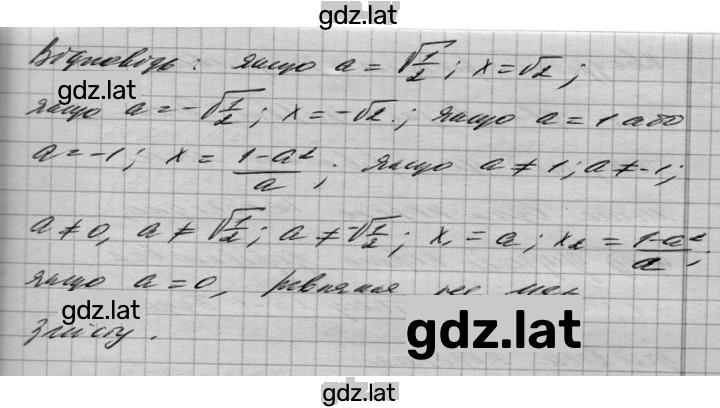 gdz.lat
Відповідь: якщо a = √(1/2); x = √2;
gdz.lat
якщо a = -√(1/2); x = -√2.; якщо a = 1 або
a = -1; x = (1-a²)/a; якщо a ≠ 1; a ≠ -1;
a ≠ 0, a ≠ √(1/2); a ≠ -√(1/2); x₁ = a; x₂ = (1-a²)/a;
якщо a = 0, рівняння не має
gdz.lat
gdz.lat
змісту.
gdz.lat